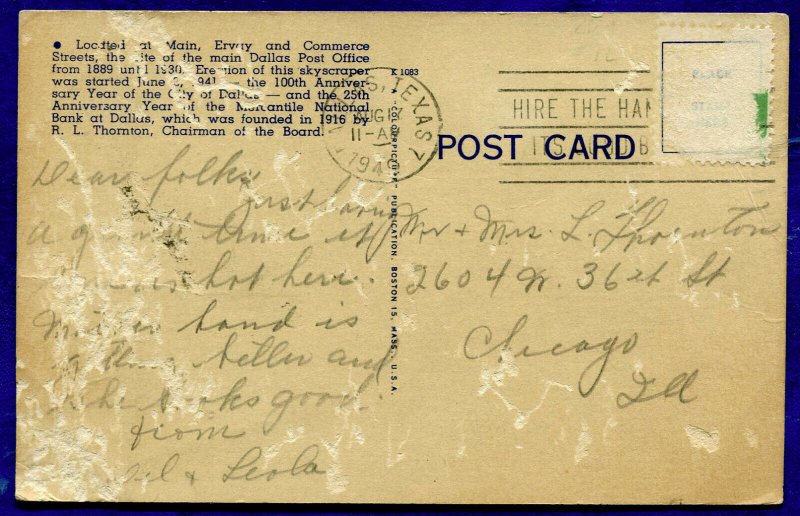 ● Located at Main, Ervay and Commerce
Streets, the site of the main Dallas Post Office
from 1889 until 1930. Erection of this skyscraper
was started June 941 — the 100th Anniver-
sary Year of the City of Dallas — and the 25th
Anniversary Year of the Mercantile National
Bank at Dallas, which was founded in 1916 by
R. L. Thornton, Chairman of the Board.
K 1083
TEXAS
AUG
11-A
194
HIRE THE HAN
IT'S B
PLACE
STAMP
HERE
POST CARD
"COLORPICTURE" PUBLICATION, BOSTON 15, MASS., U.S.A.
Dear folks
just having
a time it
hot here.
hand is
better and
looks good
from
& Leola
Mr + Mrs. L. Thornton
2604 W. 36th St
Chicago
Ill